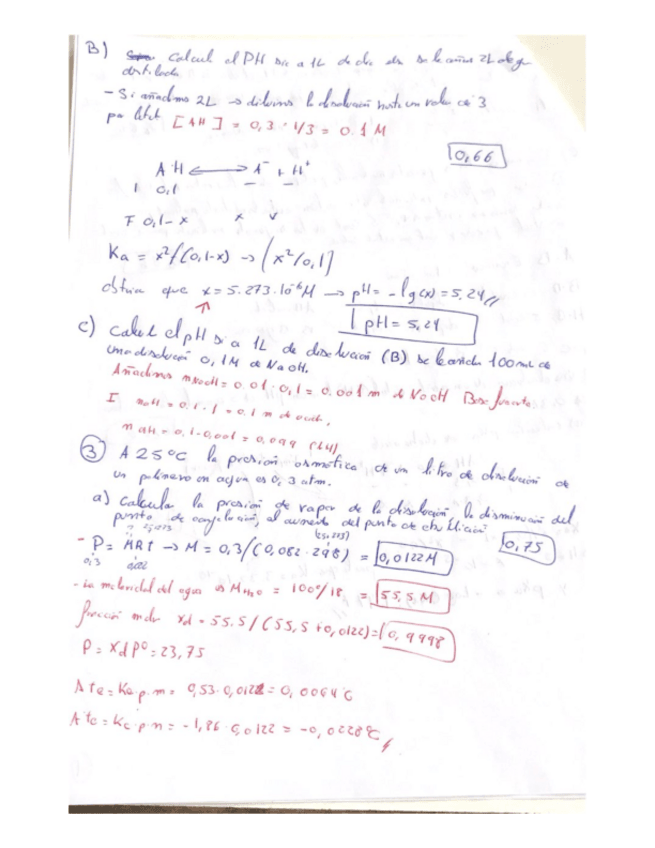 B) calcul el pH si a 1L de dis se le añade 2L de
destilada
- Si añadimos 2L → diluimos la disolución hasta un volu de 3
[AH] = 0,3 · 1/3 = 0.1 M
0,66
AH ⟷ A⁻ + H⁺
I 0,1 - -
F 0,1-x x
Ka = x²/(0,1-x) → (x²/0,1)
que x = 5.273·10⁻⁶M → pH = -lg(x) = 5,24//
pH = 5,24
C) Calcul el pH si a 1L de disolución (B) se le añada 100 mL de
una disolución 0,1M de NaOH.
Añadimos = 0.01 · 0,1 = 0.001 m de NaOH Base fuerte
I = 0.1 · 1 = 0.1 m de
n AH = 0.1-0,001 = 0,099
③ A 25ºC la presión osmótica de un litro de disolución de
un polímero en agua es 0,3 atm.
a) Calcula la presión de vapor de la disolución, la disminución del
punto de congelación, el aumento del punto de ebullición
0,75
- P = MRT → M = 0,3/(0,082 · 298) = 0,0122M
0,3 0,082
- La molaridad del agua es M H₂O = 1000/18 = 55,5 M
molar Xd = 55.5/(55,5+0,0122) = 0,9998
P = Xd P⁰ = 23,75
Δte = Ke·p·m = 0,53·0,0122 = 0,0064ºC
Δtc = Kc·p·m = -1,86·0,0122 = -0,0228ºC